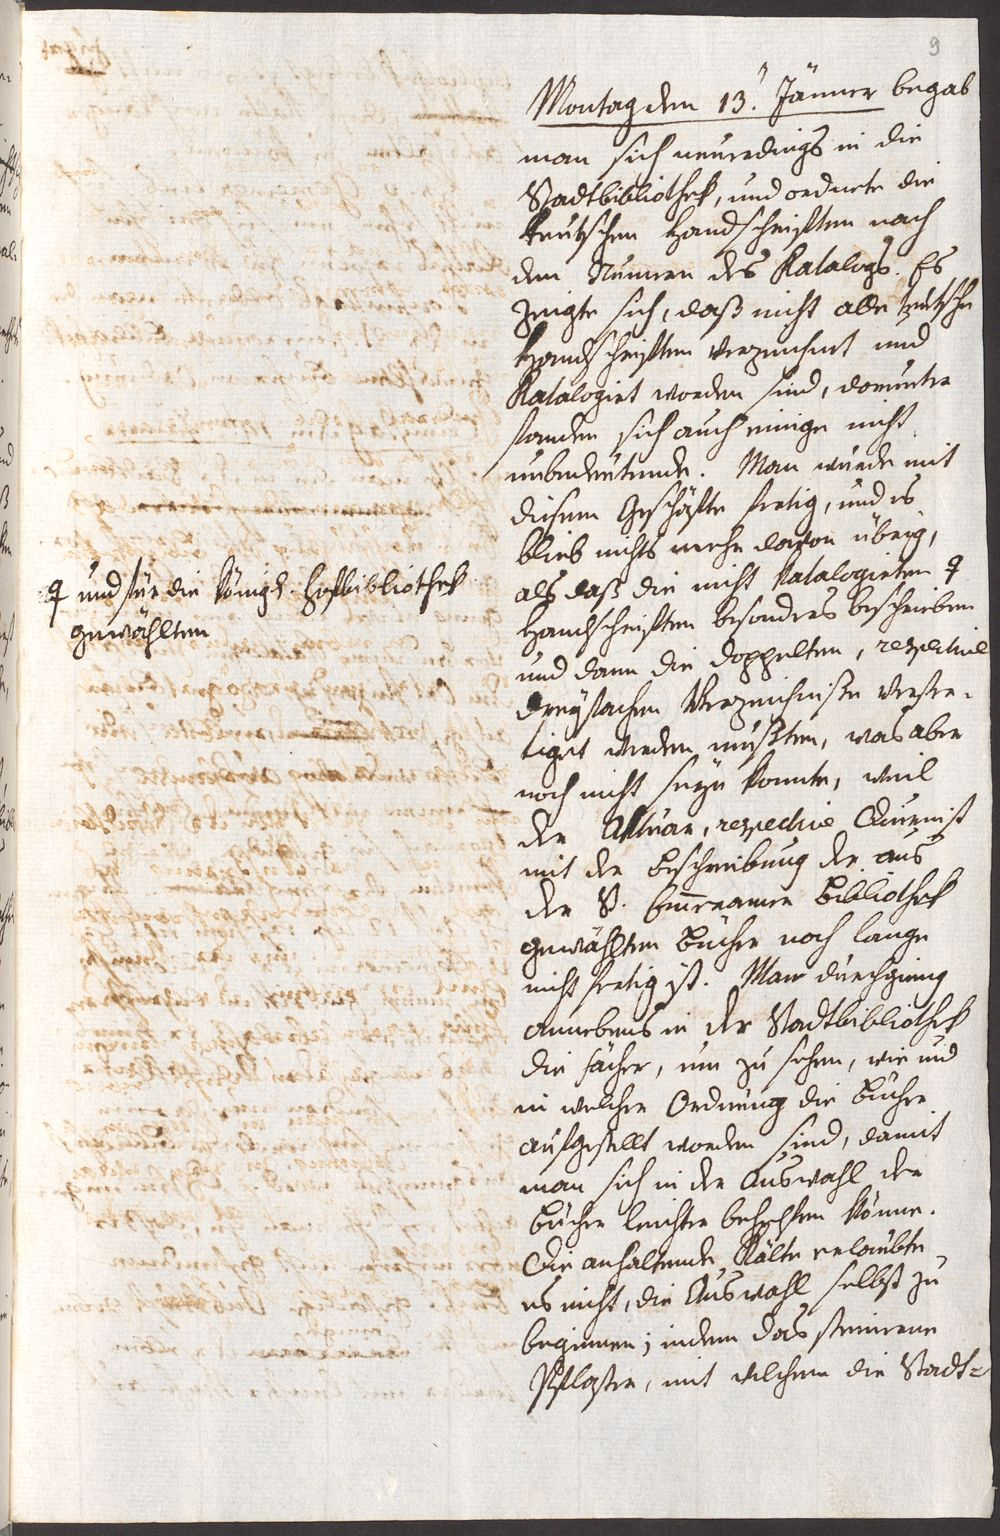 9
Montag den 13.ⁿ Jänner begab
man sich neuerdings in die
Stadtbibliothek, und ordnete die
teutschen Handschriften nach
den Numern des Katalogs. Es
zeigte sich, daß nicht alle teutsche
Handschriften verzeichnet und
Katalogirt worden sind, darunter
fanden sich auch einige nicht
unbedeutende. Man wurde mit
diesem Geschäfte fertig, und es
blieb nichts mehr davon übrig,
als daß die nicht katalogirten
und für die königl. Hofbibliothek
gewählten
Handschriften besonders beschrieben
und dann die doppelten, respective
dreyfachen Verzeichniße verfer-
tiget werden mußten, was aber
noch nicht seyn konnte, weil
der Aktuar, respective Diurnist
mit der Beschreibung der aus
der St. Emeramer Bibliothek
gewählten Bücher noch lange
nicht fertig ist. Man durchgieng
annebens in der Stadtbibliothek
die Fächer, um zu sehen, wie und
in welcher Ordnung die Bücher
aufgestellt worden sind, damit
man sich in der Auswahl der
Bücher leichter behelfen könne.
Die anhaltende Kälte erlaubte
es nicht, die Auswahl selbst zu
beginnen; indem das steinerne
Pflaster, mit welchem die Stadt=